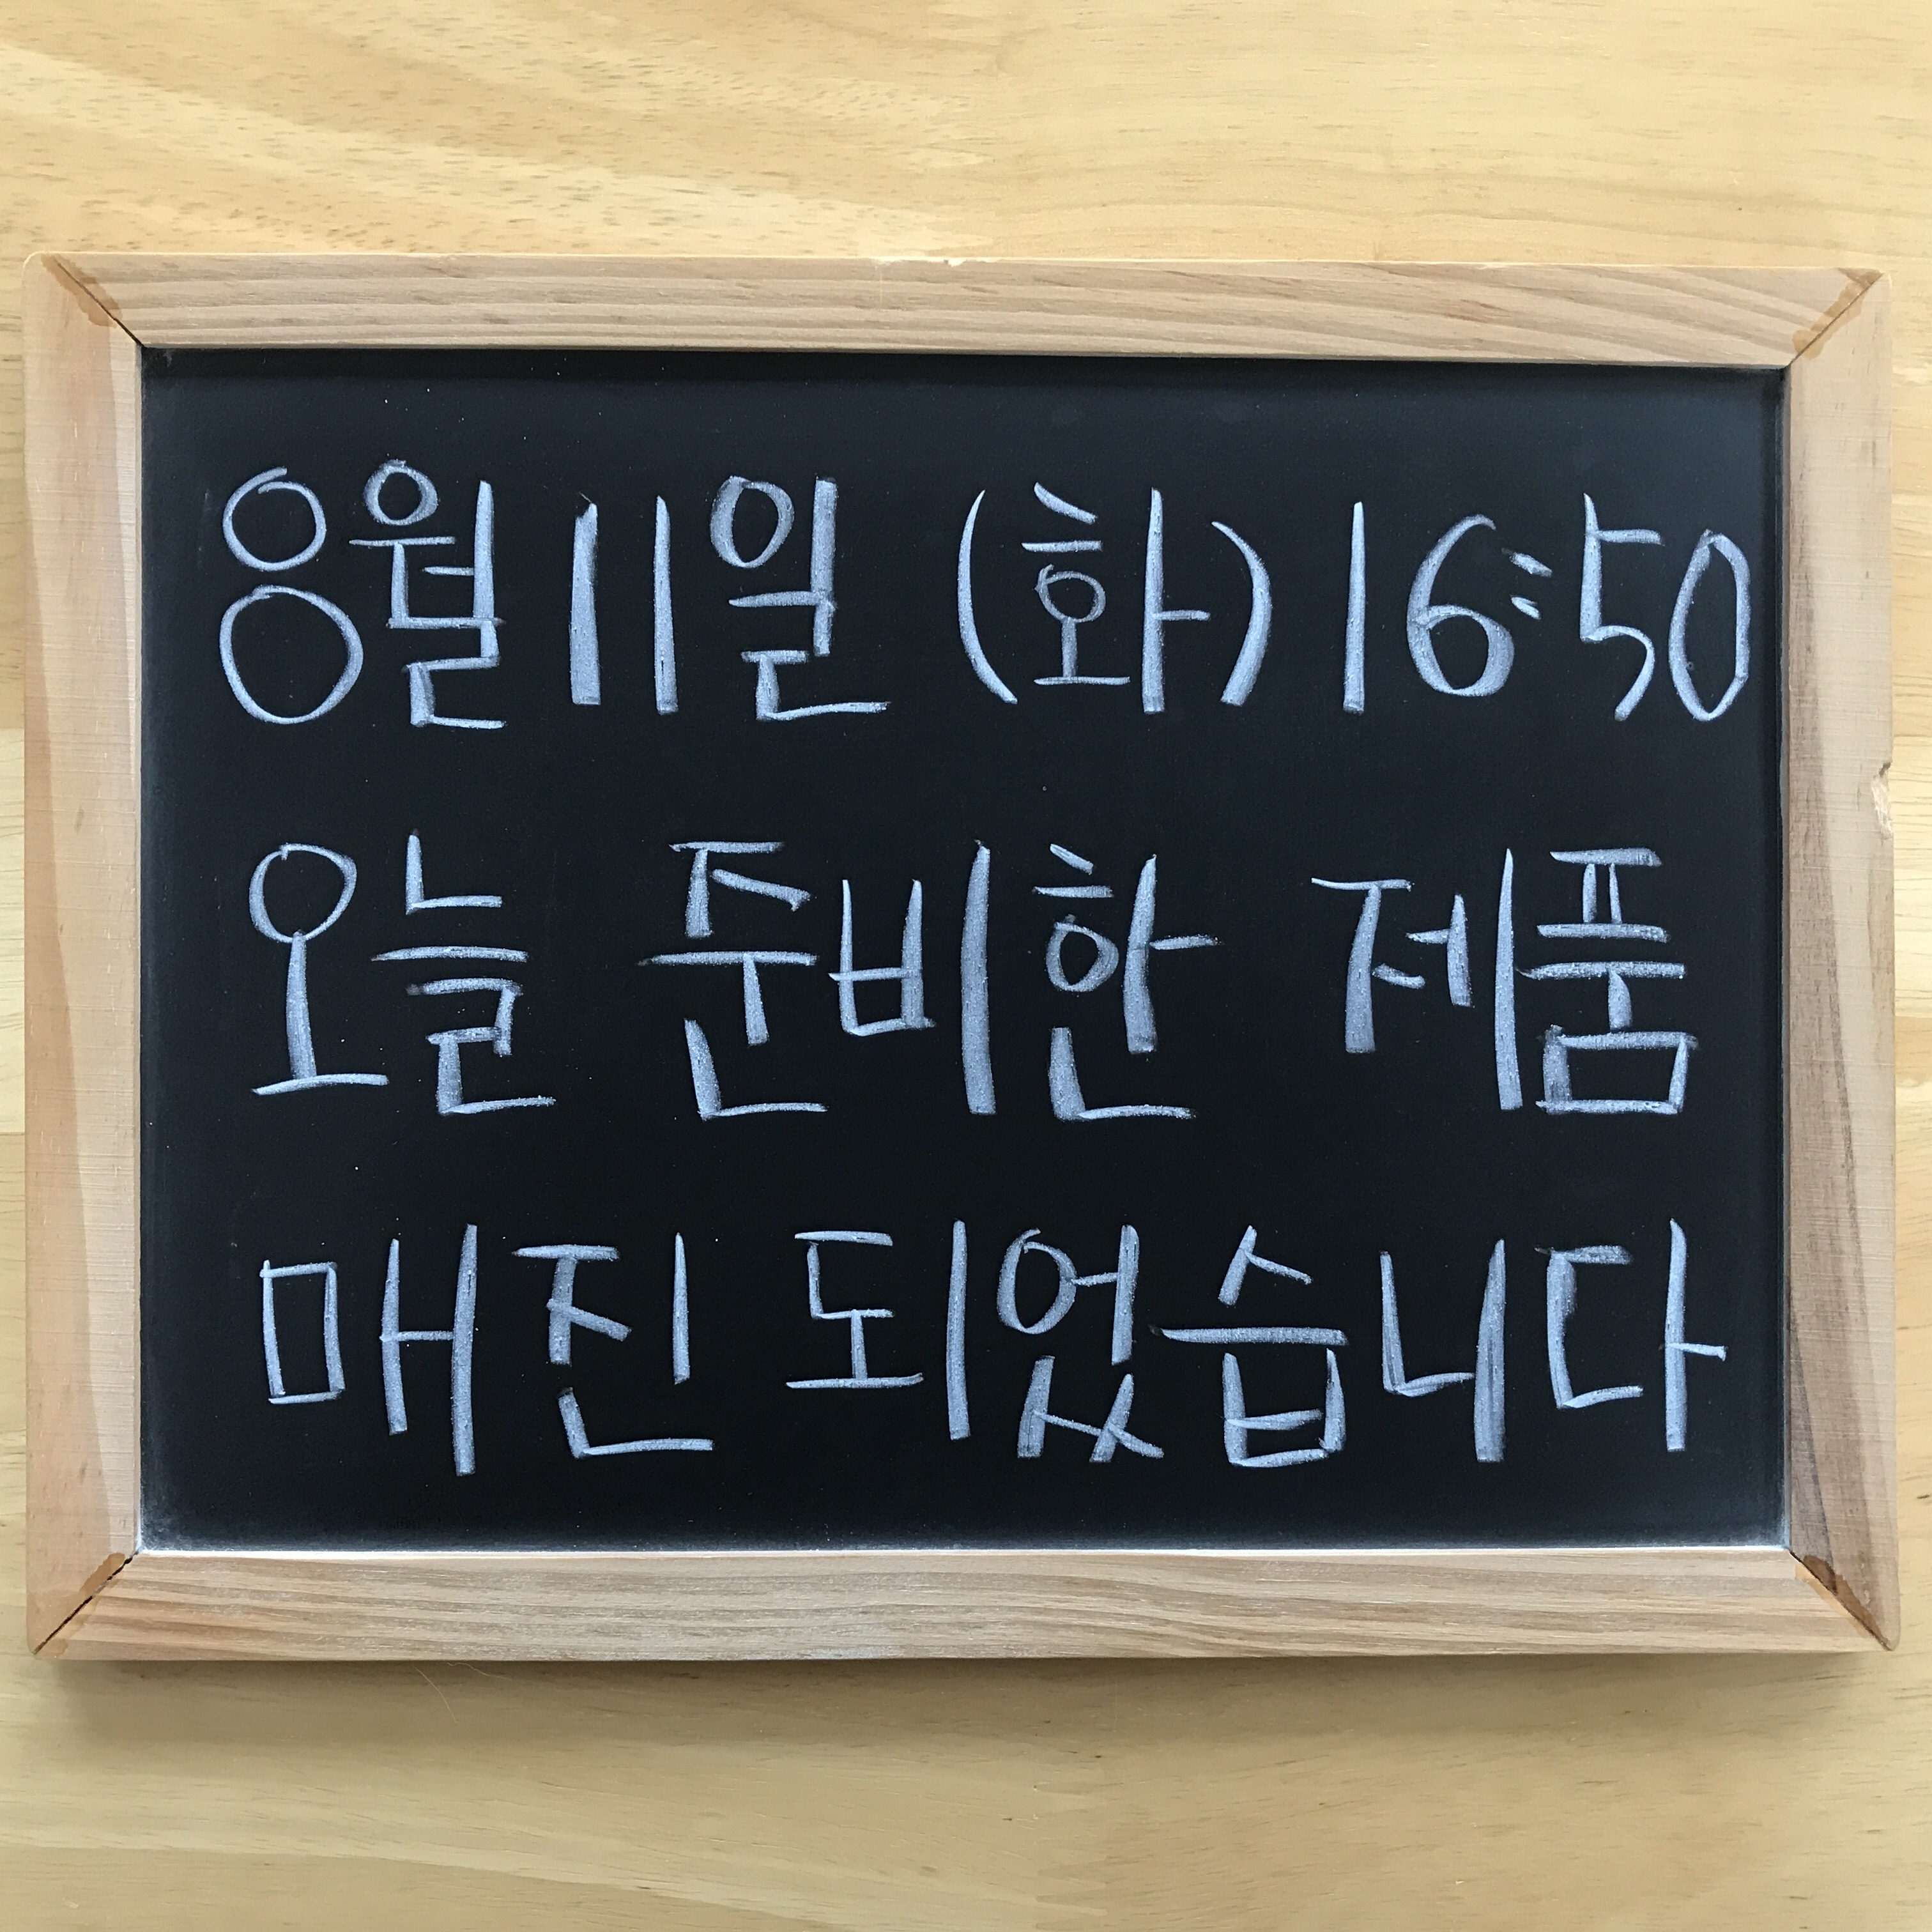 8월 11일 (화) 16:50
오늘 준비한 제품
매진 되었습니다